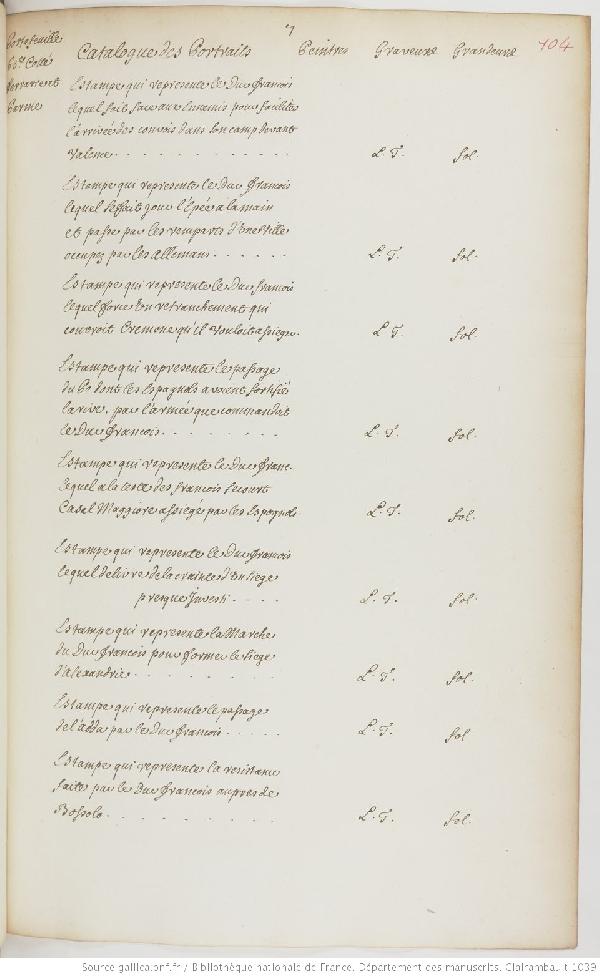 7
Portefeuille
Catalogue des Portraits Peintres Graveure Grandeure 104
Ferrare et
Parme
Estampe qui represente le Duc francois
lequel fait face aux Ennemis pour faciliter
l'arrivée des convois dans son camp devant
Valence . . . . L. T. fol.
Estampe qui represente le Duc francois
lequel se fait jour l'Epée a la main
et passe par les remparts d'une Ville
occupez par les Allemans . . . . L. T. fol.
Estampe qui represente le Duc francois
lequel force un retranchement qui
couvroit Cremone qu'il vouloit assieger. L. T. fol.
Estampe qui represente le passage
du Po dont les Espagnols avoient fortifiés
la rive, par l'armée que commandoit
le Duc francois . . . . L. T. fol.
Estampe qui represente le Duc franc.
lequel a la teste des francois secourt
Casal Maggiore assiegé par les Espagnols L. T. fol.
Estampe qui represente le Duc francois
lequel delivre de la crainte d'un siege
presque Investi . . . . L. T. fol.
Estampe qui represente la Marche
du Duc francois pour former le siege
d'Alexandrie . . . . L. T. fol.
Estampe qui represente le passage
de l'adda par le Duc francois . . . . L. T. fol
Estampe qui represente la resistance
faite par le Duc francois aupres de
Bossolo . . . . L. T. fol.
Source gallica.bnf.fr / Bibliothèque nationale de France. Département des manuscrits. Clairambault 1039